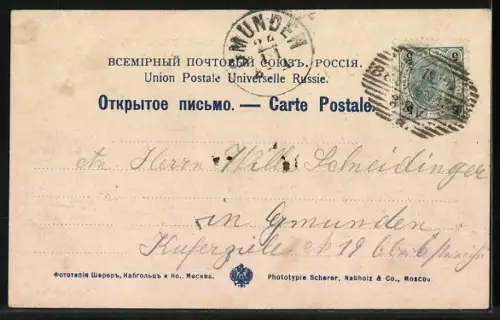 GMUNDEN
24
ВСЕМІРНЫЙ ПОЧТОВЫЙ СОЮЗЪ. РОССІЯ.
Union Postale Universelle Russie.
5 5
Открытое письмо. — Carte Postale.
An Herrn Willi Schneidinger
in Gmunden
N 19
Фототипія Шереръ, Набгольцъ и Ко., Москва.
Phototypie Scherer, Nabholz & Co., Moscou